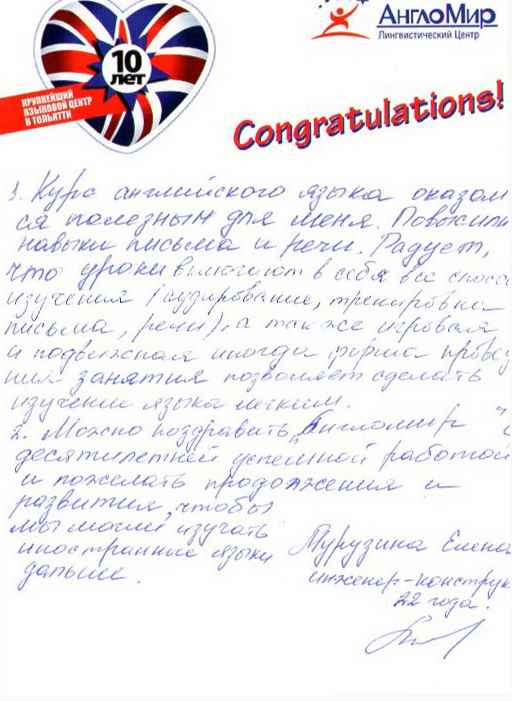 10
ЛЕТ
КРУПНЕЙШИЙ
ЯЗЫКОВОЙ ЦЕНТР
В ТОЛЬЯТТИ
АнглоМир
Лингвистический Центр
Congratulations!
1. Курс английского языка оказал
ся полезным для меня. Повысили
навыки письма и речи. Радует,
что уроки включают в себя все спосо
изучения (аудирование, тренировка
письма, речи), а так же игровая
и подвижная иногда форма провед
ния занятия позволяет сделать
изучение языка легким.
2. Можно поздравить "Англомир" с
десятилетней успешной работой
и пожелать продолжения и
развития, чтобы
мы могли изучать
иностранные языки
дальше.
Мурузина Елена
инженер-конструк
22 года.